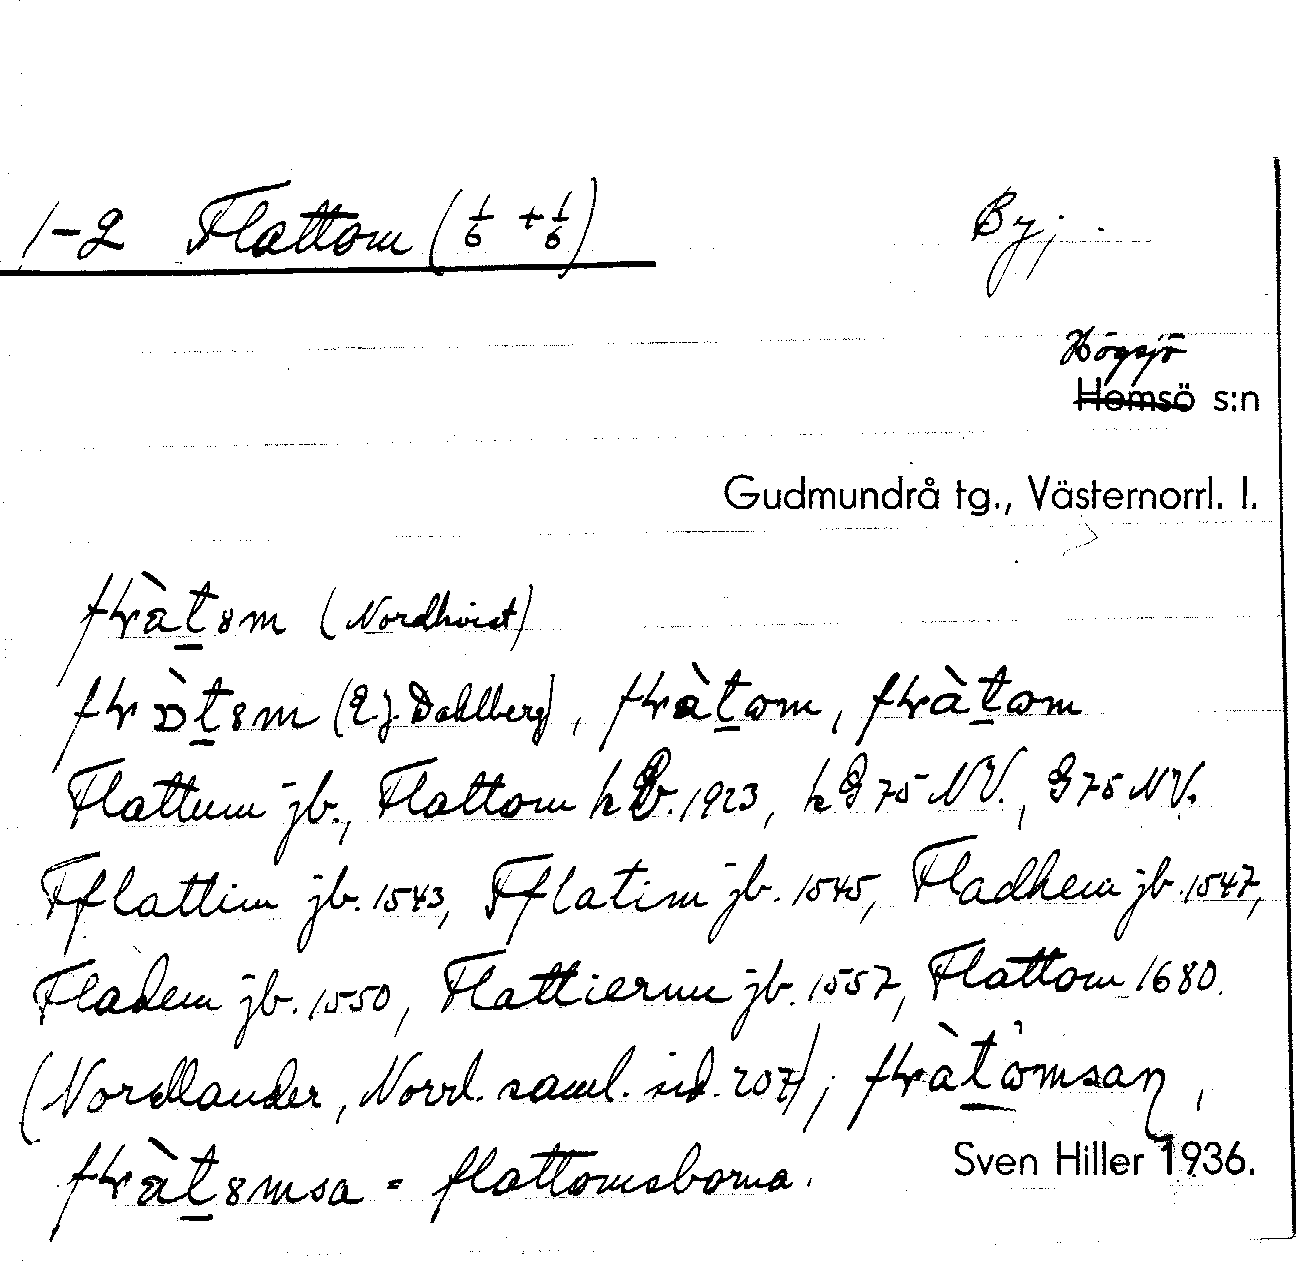 1-2 Flattom (1/6 + 1/6) By;
Högsjö
Hemsö s:n
Gudmundrå tg., Västernorrl. l.
(Nordkvist)
(E. J. Dahlberg),
Flattum jb., Flattom 1923, 75 NV., G 75 NV.
Fflattim jb. 1543, Fflatim jb. 1545, Fladhem jb. 1547,
Fladem jb. 1550, Flattierum jb. 1557, Flattom 1680.
(Nordlander, Norrl. saml. sid. 207);
= flattomsborna.
Sven Hiller 1936.